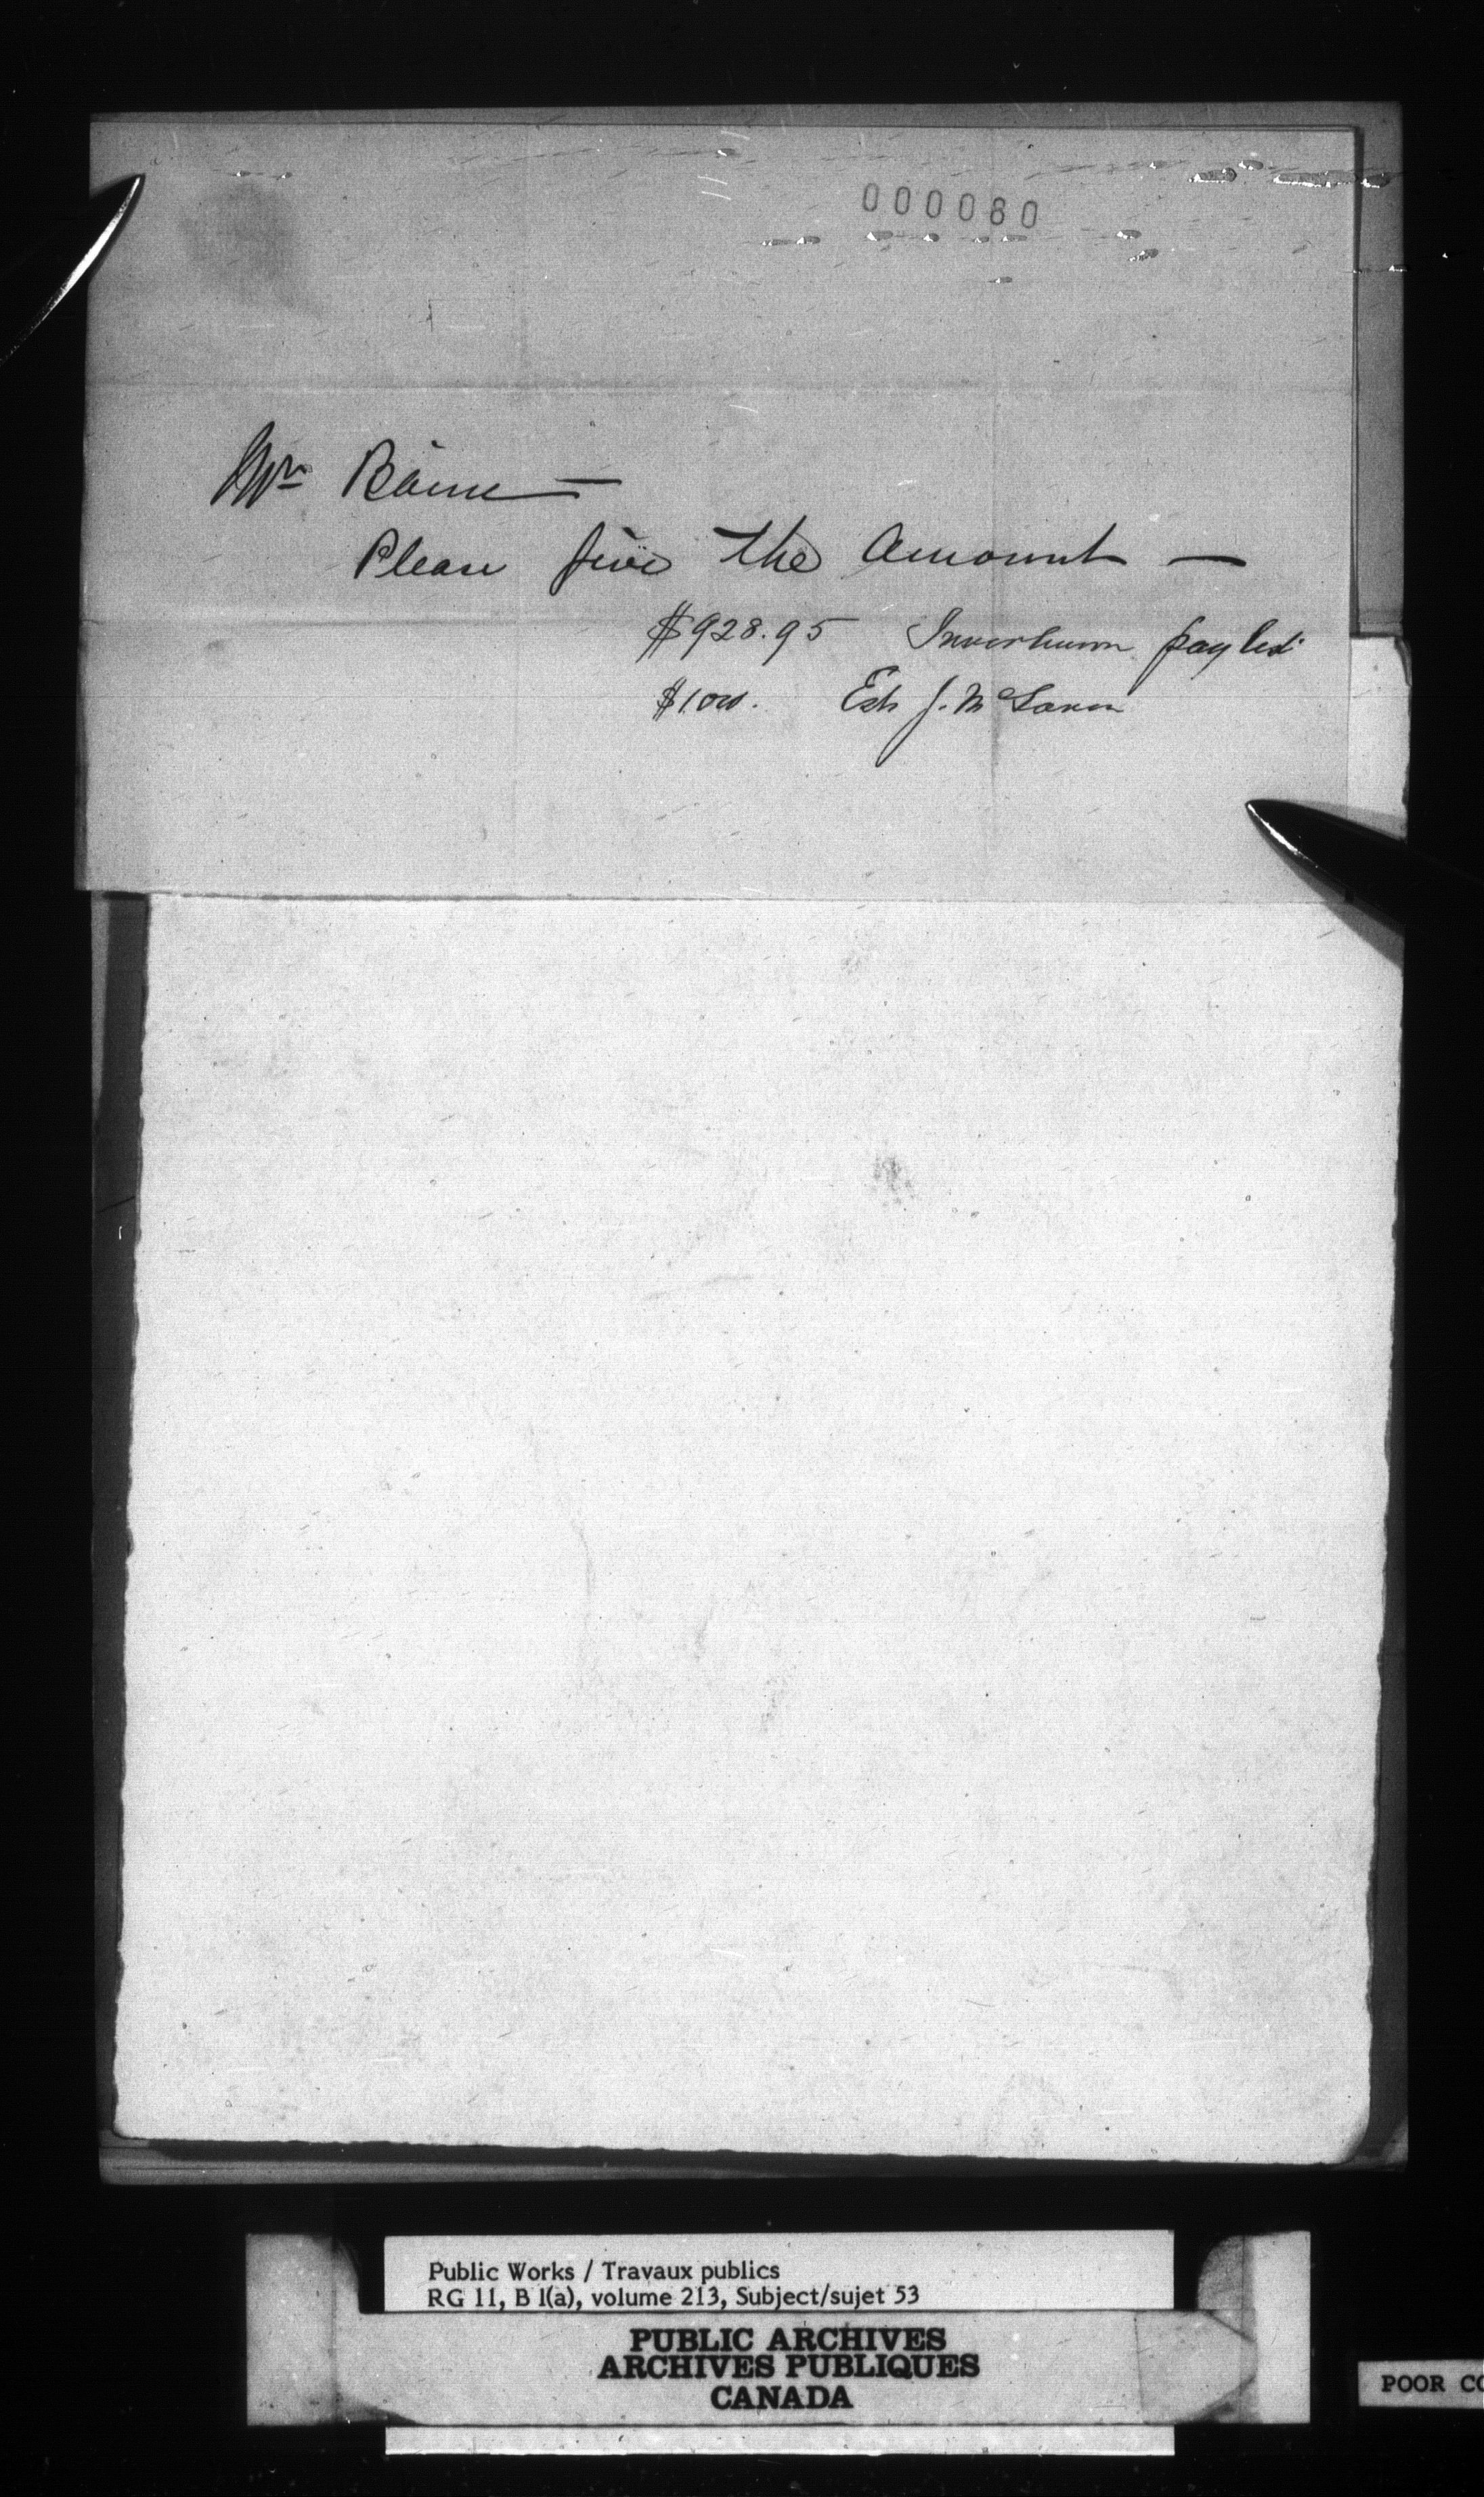 000080
Mr Baine —
Please give the amount —
$928.95 Inverhuron pay list
$1.00. Est J. McLaren
Public Works / Travaux publics
RG 11, B 1(a), volume 213, Subject/sujet 53
PUBLIC ARCHIVES
ARCHIVES PUBLIQUES
CANADA
POOR CO